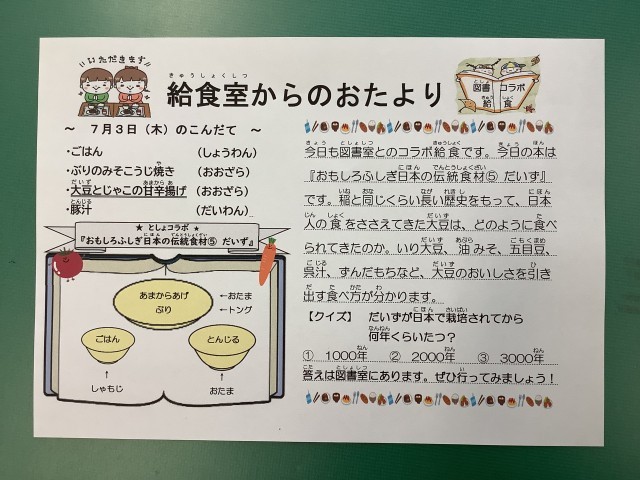 いただきます
給食室からのおたより
きゅうしょくしつ
図書コラボ給食
～ 7月3日（木）のこんだて ～
・ごはん （しょうわん）
・ぶりのみそこうじ焼き （おおざら）
・大豆とじゃこの甘辛揚げ （おおざら）
・豚汁 （だいわん）
★ としょコラボ ★
『おもしろふしぎ日本の伝統食材⑤ だいず』
あまからあげ
ぶり
←おたま
←トング
ごはん
とんじる
↑
しゃもじ
↑
おたま
今日も図書室とのコラボ給食です。今日の本は
『おもしろふしぎ日本の伝統食材⑤ だいず』
です。稲と同じくらい長い歴史をもって、日本
人の食をささえてきた大豆は、どのように食べ
られてきたのか。いり大豆、油みそ、五目豆、
呉汁、ずんだもちなど、大豆のおいしさを引き
出す食べ方が分かります。
【クイズ】 だいずが日本で栽培されてから
何年くらいたつ？
① 1000年 ② 2000年 ③ 3000年
答えは図書室にあります。ぜひ行ってみましょう！